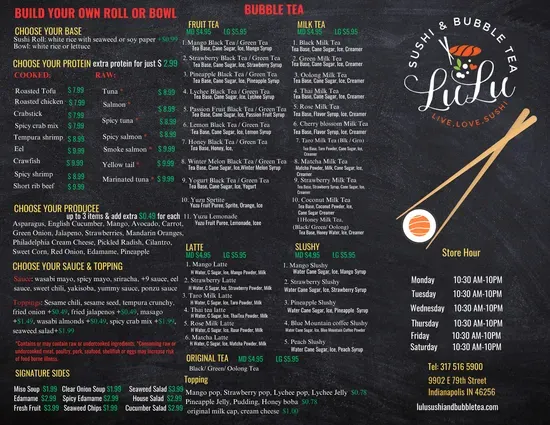 BUILD YOUR OWN ROLL OR BOWL
CHOOSE YOUR BASE
Sushi Roll: white rice with seaweed or soy paper +$0.99
Bowl: white rice or lettuce
CHOOSE YOUR PROTEIN extra protein for just $ 2.99
COOKED:
Roasted Tofu $ 7.99
Roasted chicken $ 7.99
Crabstick $ 7.99
Spicy crab mix $ 7.99
Tempura shrimp $ 8.99
Eel $ 8.99
Crawfish $ 8.99
Spicy shrimp $ 8.99
Short rib beef $ 8.99
RAW:
Tuna * $ 8.99
Salmon * $ 8.99
Spicy tuna * $ 8.99
Spicy salmon * $ 8.99
Smoke salmon * $ 8.99
Yellow tail * $ 8.99
Marinated tuna * $ 8.99
CHOOSE YOUR PRODUCEE
up to 3 items & add extra $0.49 for each
Asparagus, English Cucumber, Mango, Avocado, Carrot,
Green Onion, Jalapeno, Strawberries, Mandarin Oranges,
Philadelphia Cream Cheese, Pickled Radish, Cilantro,
Sweet Corn, Red Onion, Edamame, Pineapple
CHOOSE YOUR SAUCE & TOPPING
Sauce: wasabi mayo, spicy mayo, sriracha, +9 sauce, eel
sauce, sweet chili, yakisoba, yummy sauce, ponzu sauce
Toppings: Sesame chili, sesame seed, tempura crunchy,
fried onion +$0.49, fried jalapenos +$0.49, masago
+$1.49, wasabi almonds +$0.49, spicy crab mix +$1.99,
seaweed salad+$1.99
*Contains or may contain raw or undercooked ingredients. *Consuming raw of
undercooked meat, poultry, pork, seafood, shellfish or eggs may increase risk
of food borne illness.
SIGNATURE SIDES
Miso Soup $1.99 Clear Onion Soup $1.99 Seaweed Salad $3.99
Edamame $2.99 Spicy Edamame $2.99 House Salad $2.99
Fresh Fruit $3.99 Seaweed Chips $1.99 Cucumber Salad $2.99
BUBBLE TEA
FRUIT TEA
MD $4.95 LG $5.95
1. Mango Black Tea / Green Tea
Tea Base, Cane Sugar, Ice, Mango Syrup
2. Strawberry Black Tea / Green Tea
Tea Base, Cane Sugar, Ice, Strawberry Syrup
3. Pineapple Black Tea / Green Tea
Tea Base, Cane Sugar, Ice, Pineapple Syrup
4. Lychee Black Tea / Green Tea
Tea Base, Cane Sugar, Ice, Lychee Syrup
5. Passion Fruit Black Tea / Green Tea
Tea Base, Cane Sugar, Ice, Passion Fruit Syrup
6. Lemon Black Tea / Green Tea
Tea Base, Cane Sugar, Ice, Lemon Syrup
7. Honey Black Tea / Green Tea
Tea Base, Honey, Ice,
8. Winter Melon Black Tea / Green Tea
Tea Base, Cane Sugar, Ice,Winter Melon Syrup
9. Yogurt Black Tea / Green Tea
Tea Base, Cane Sugar, Ice, Yogurt
10. Yuzu Spritite
Yuzu Fruit Puree, Sprite, Orange, Ice
11. Yuzu Lemonade
Yuzu Fruit Puree, Lemonade, Icee
LATTE
MD $4.95 LG $5.95
1. Mango Latte
H Water, C Sugar, Ice, Mango Powder, Milk
2. Strawberry Latte
H Water, C Sugar, Ice, Strawberry Powder, Milk
3. Taro Milk Latte
H Water, C Sugar, Ice, Taro Powder, Milk
4. Thai tea latte
H Water, C Sugar, Ice, ThaiTea Powder, Milk
5. Rose Milk Latte
H Water, C Sugar, Ice, Rose Powder, Milk
6. Matcha Latte
H Water, C Sugar, Ice, Matcha Powder, Milk
ORIGINAL TEA MD $4.95 LG $5.95
Black/ Green/ Oolong Tea
Topping
Mango pop, Strawberry pop, Lychee pop, Lychee Jelly $0.78
Pineapple Jelly, Pudding, Honey boba $0.78
original milk cap, cream cheese $1.00
MILK TEA
MD $4.95 LG $5.95
1. Black Milk Tea
Tea Base, Cane Sugar, Ice, Creamer
2. Green Milk Tea
Tea Base, Cane Sugar, Ice, Creamer
3. Oolong Milk Tea
Tea Base, Cane Sugar, Ice, Creamer
4. Thai Milk Tea
Tea Base, Cane Sugar, Ice, Creamer
5. Rose Milk Tea
Tea Base, Flavor Syrup, Ice, Creamer
6. Cherry Blossom Milk Tea
Tea Base, Flavor Syrup, Ice, Creamer
7. Taro Milk Tea (Blk / Grn)
Tea Base, Taro Powder, Cane Sugar, Ice,
Creamer
8. Matcha Milk Tea
Matcha Powder, Milk, Cane Sugar, Ice,
Creamer
9. Strawberry Milk Tea
Tea Base, Strawberry Syrup, Cane Sugar, Ice,
Creamer
10. Coconut Milk Tea
Tea Base, Coconut Powder, Ice,
Cane Sugar Creamer
11Honey Milk Tea.
(Black/ Green/ Oolong)
Tea Base, Honey Water, Ice, Creamer
SLUSHY
MD $4.95 LG $5.95
1. Mango Slushy
Water Cane Sugar, Ice, Mango Syrup
2. Strawberry Slushy
Water Cane Sugar, Ice, Strawberry Syrup
3. Pineapple Slushy
Water Cane Sugar, Ice, Pineapple Syrup
4. Blue Mountain coffee Slushy
Water Cane Sugar, Ice, Blue Mountain Coffee Powder
5. Peach Slushy
Water Cane Sugar, Ice, Peach Syrup
SUSHI & BUBBLE TEA
LuLu
LIVE.LOVE.SUSHI
Store Hour
Monday 10:30 AM-10PM
Tuesday 10:30 AM-10PM
Wednesday 10:30 AM-10PM
Thursday 10:30 AM-10PM
Friday 10:30 AM-10PM
Saturday 10:30 AM-10PM
Tel: 317 516 5900
9902 E 79th Street
Indianapolis IN 46256
lulusushiandbubbletea.com